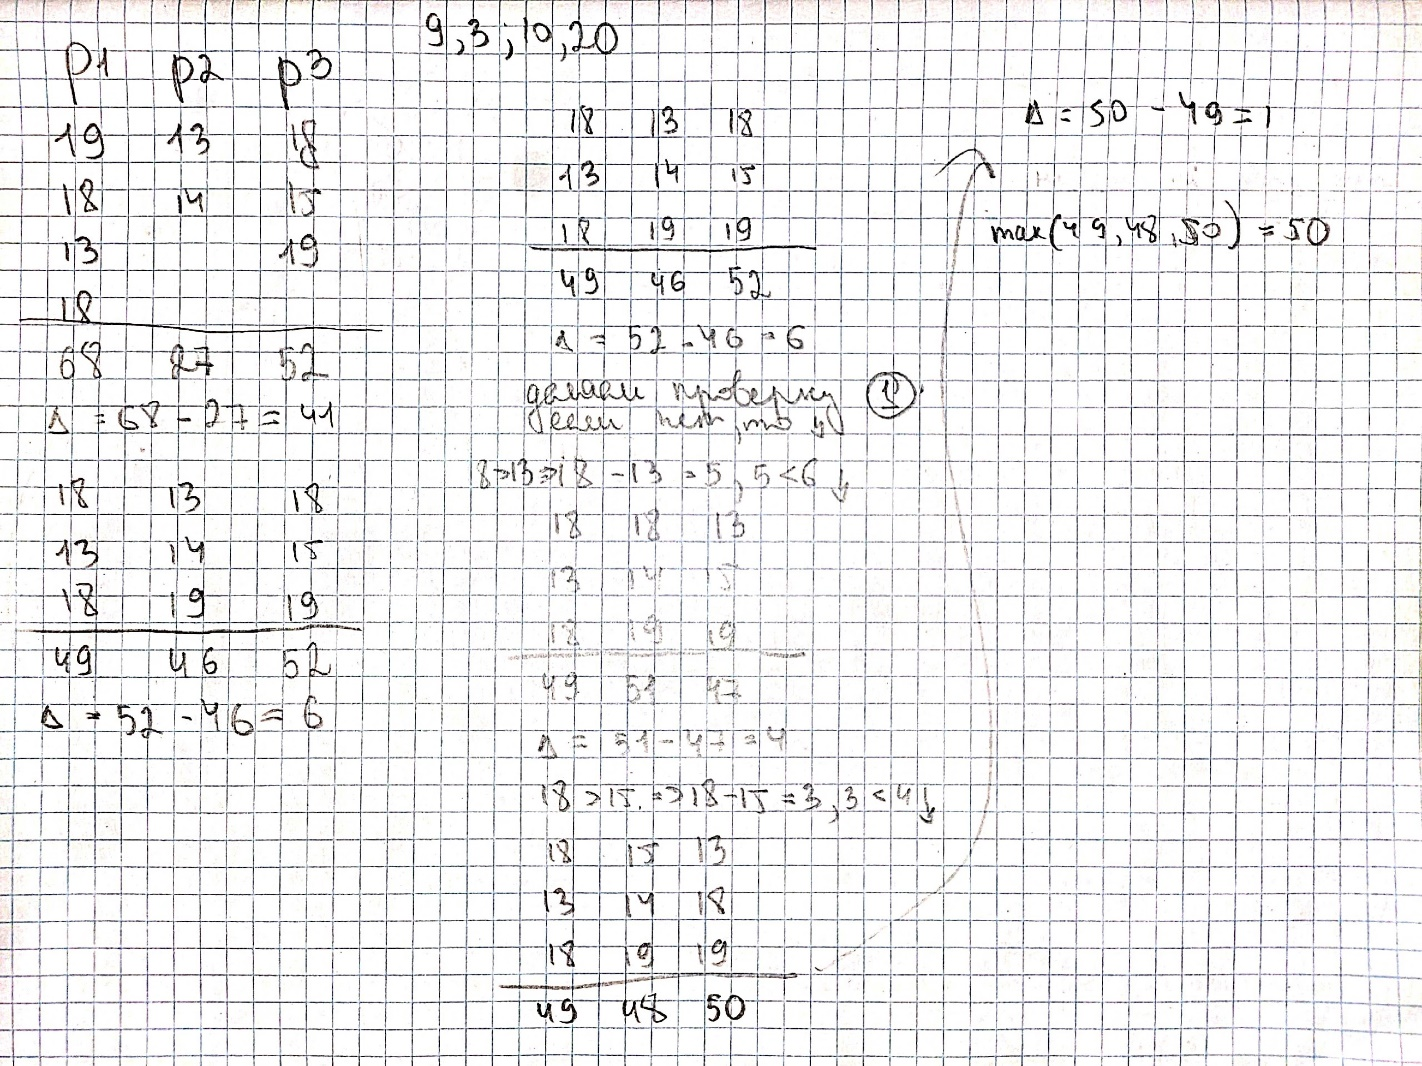 9,3;10,20
p1 p2 p3
19 13 18
18 14 15
13 19
18
68 27 52
Δ = 68 - 27 = 41
18 13 18
13 14 15
18 19 19
49 46 52
Δ = 52 - 46 = 6
18 13 18
13 14 15
18 19 19
49 46 52
Δ = 52 - 46 = 6
делаем проверку
если нет, то ↓
8>13=>18-13=5, 5<6 ↓
18 18 13
13 14 15
18 19 19
49 51 47
Δ = 51 - 47 = 4
18>15 =>18-15=3, 3<4 ↓
18 15 13
13 14 18
18 19 19
49 48 50
Δ = 50 - 49 = 1
max(49,48,50) = 50